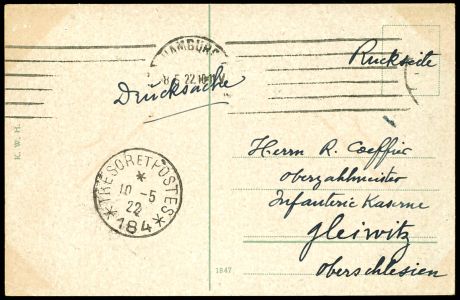 HAMBURG
8.5.22.10-11V
Rückseite
Drucksache
K. W. H.
TRESOR ET POSTES
10 - 5
22
184
Herrn R. Coeffier
Oberzahlmeister
Infanterie Kaserne
Gleiwitz
Oberschlesien
1847